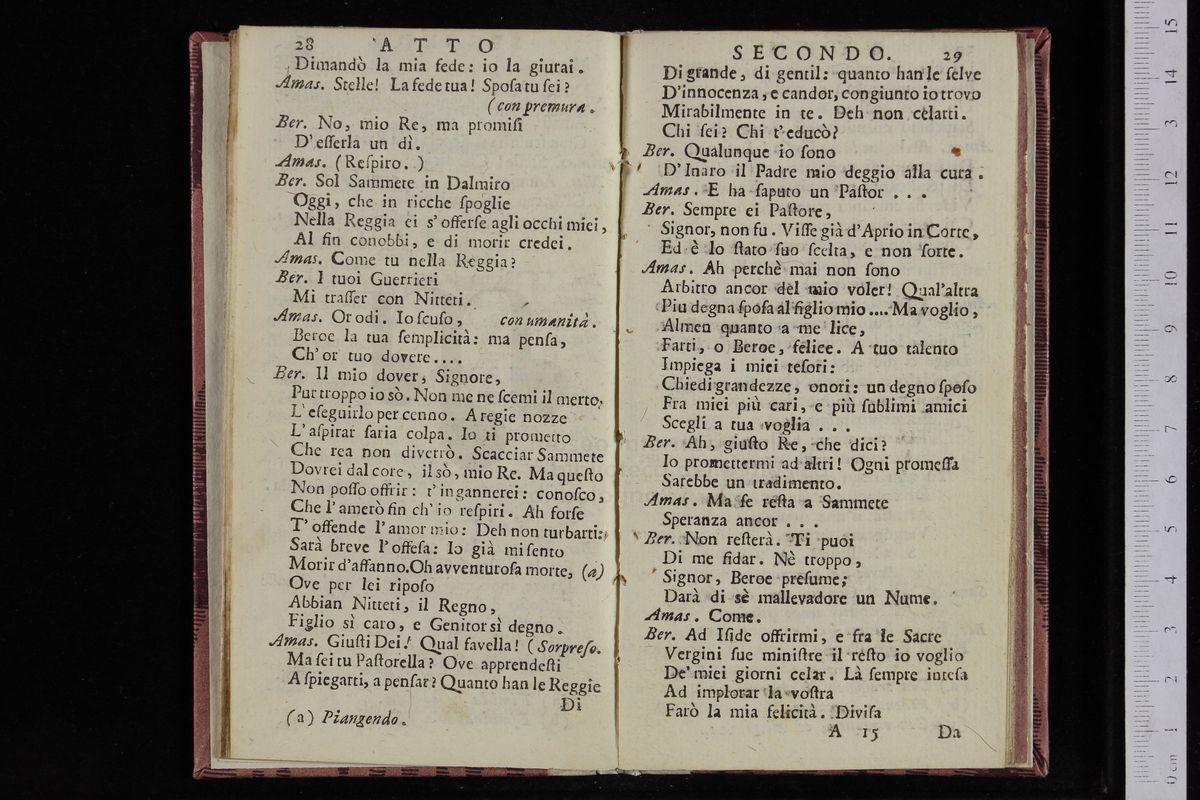 28 ATTO
Dimandò la mia fede: io la giurai.
Amas. Stelle! La fede tua! Sposa tu sei?
(con premura.
Ber. No, mio Re, ma promisi
D'esserla un dì.
Amas. (Respiro.)
Ber. Sol Sammete in Dalmiro
Oggi, che in ricche spoglie
Nella Reggia ei s'offerse agli occhi miei,
Al fin conobbi, e di morir credei.
Amas. Come tu nella Reggia?
Ber. I tuoi Guerrieri
Mi trasser con Nitteti.
Amas. Or odi. Io scuso, con umanità.
Beroe la tua semplicità: ma pensa,
Ch'or tuo dovere....
Ber. Il mio dover, Signore,
Pur troppo io sò. Non me ne scemi il merto,
L'eseguirlo per cenno. A regie nozze
L'aspirar saria colpa. Io ti prometto
Che rea non diverrò. Scacciar Sammete
Dovrei dal core, il sò, mio Re. Ma questo
Non posso offrir: t'ingannerei: conosco,
Che l'amerò fin ch'io respiri. Ah forse
T'offende l'amor mio: Deh non turbarti:
Sarà breve l'offesa: Io già mi sento
Morir d'affanno. Oh avventurosa morte, (a)
Ove per lei riposo
Abbian Nitteti, il Regno,
Figlio sì caro, e Genitor sì degno.
Amas. Giusti Dei! Qual favella! (Sorpreso.
Ma sei tu Pastorella? Ove apprendesti
A spiegarti, a pensar? Quanto han le Reggie
Di
(a) Piangendo.
SECONDO. 29
Di grande, di gentil: quanto han le selve
D'innocenza, e candor, congiunto io trovo
Mirabilmente in te. Deh non celarti.
Chi sei? Chi t'educò?
Ber. Qualunque io sono
D'Inaro il Padre mio deggio alla cura.
Amas. E ha saputo un Pastor...
Ber. Sempre ei Pastore,
Signor, non fu. Visse già d'Aprio in Corte,
Ed è lo stato suo scelta, e non sorte.
Amas. Ah perchè mai non sono
Arbitro ancor del mio voler! Qual'altra
Piu degna sposa al figlio mio.... Ma voglio,
Almen quanto a me lice,
Farti, o Beroe, felice. A tuo talento
Impiega i miei tesori:
Chiedi grandezze, onori: un degno sposo
Fra miei più cari, e più sublimi amici
Scegli a tua voglia...
Ber. Ah, giusto Re, che dici?
Io promettermi ad altri! Ogni promessa
Sarebbe un tradimento.
Amas. Ma se resta a Sammete
Speranza ancor...
Ber. Non resterà. Ti puoi
Di me fidar. Nè troppo,
Signor, Beroe presume;
Darà di sè mallevadore un Nume.
Amas. Come.
Ber. Ad Iside offrirmi, e fra le Sacre
Vergini sue ministre il resto io voglio
De' miei giorni celar. Là sempre intesa
Ad implorar la vostra
Farò la mia felicità. Divisa
A 15 Da